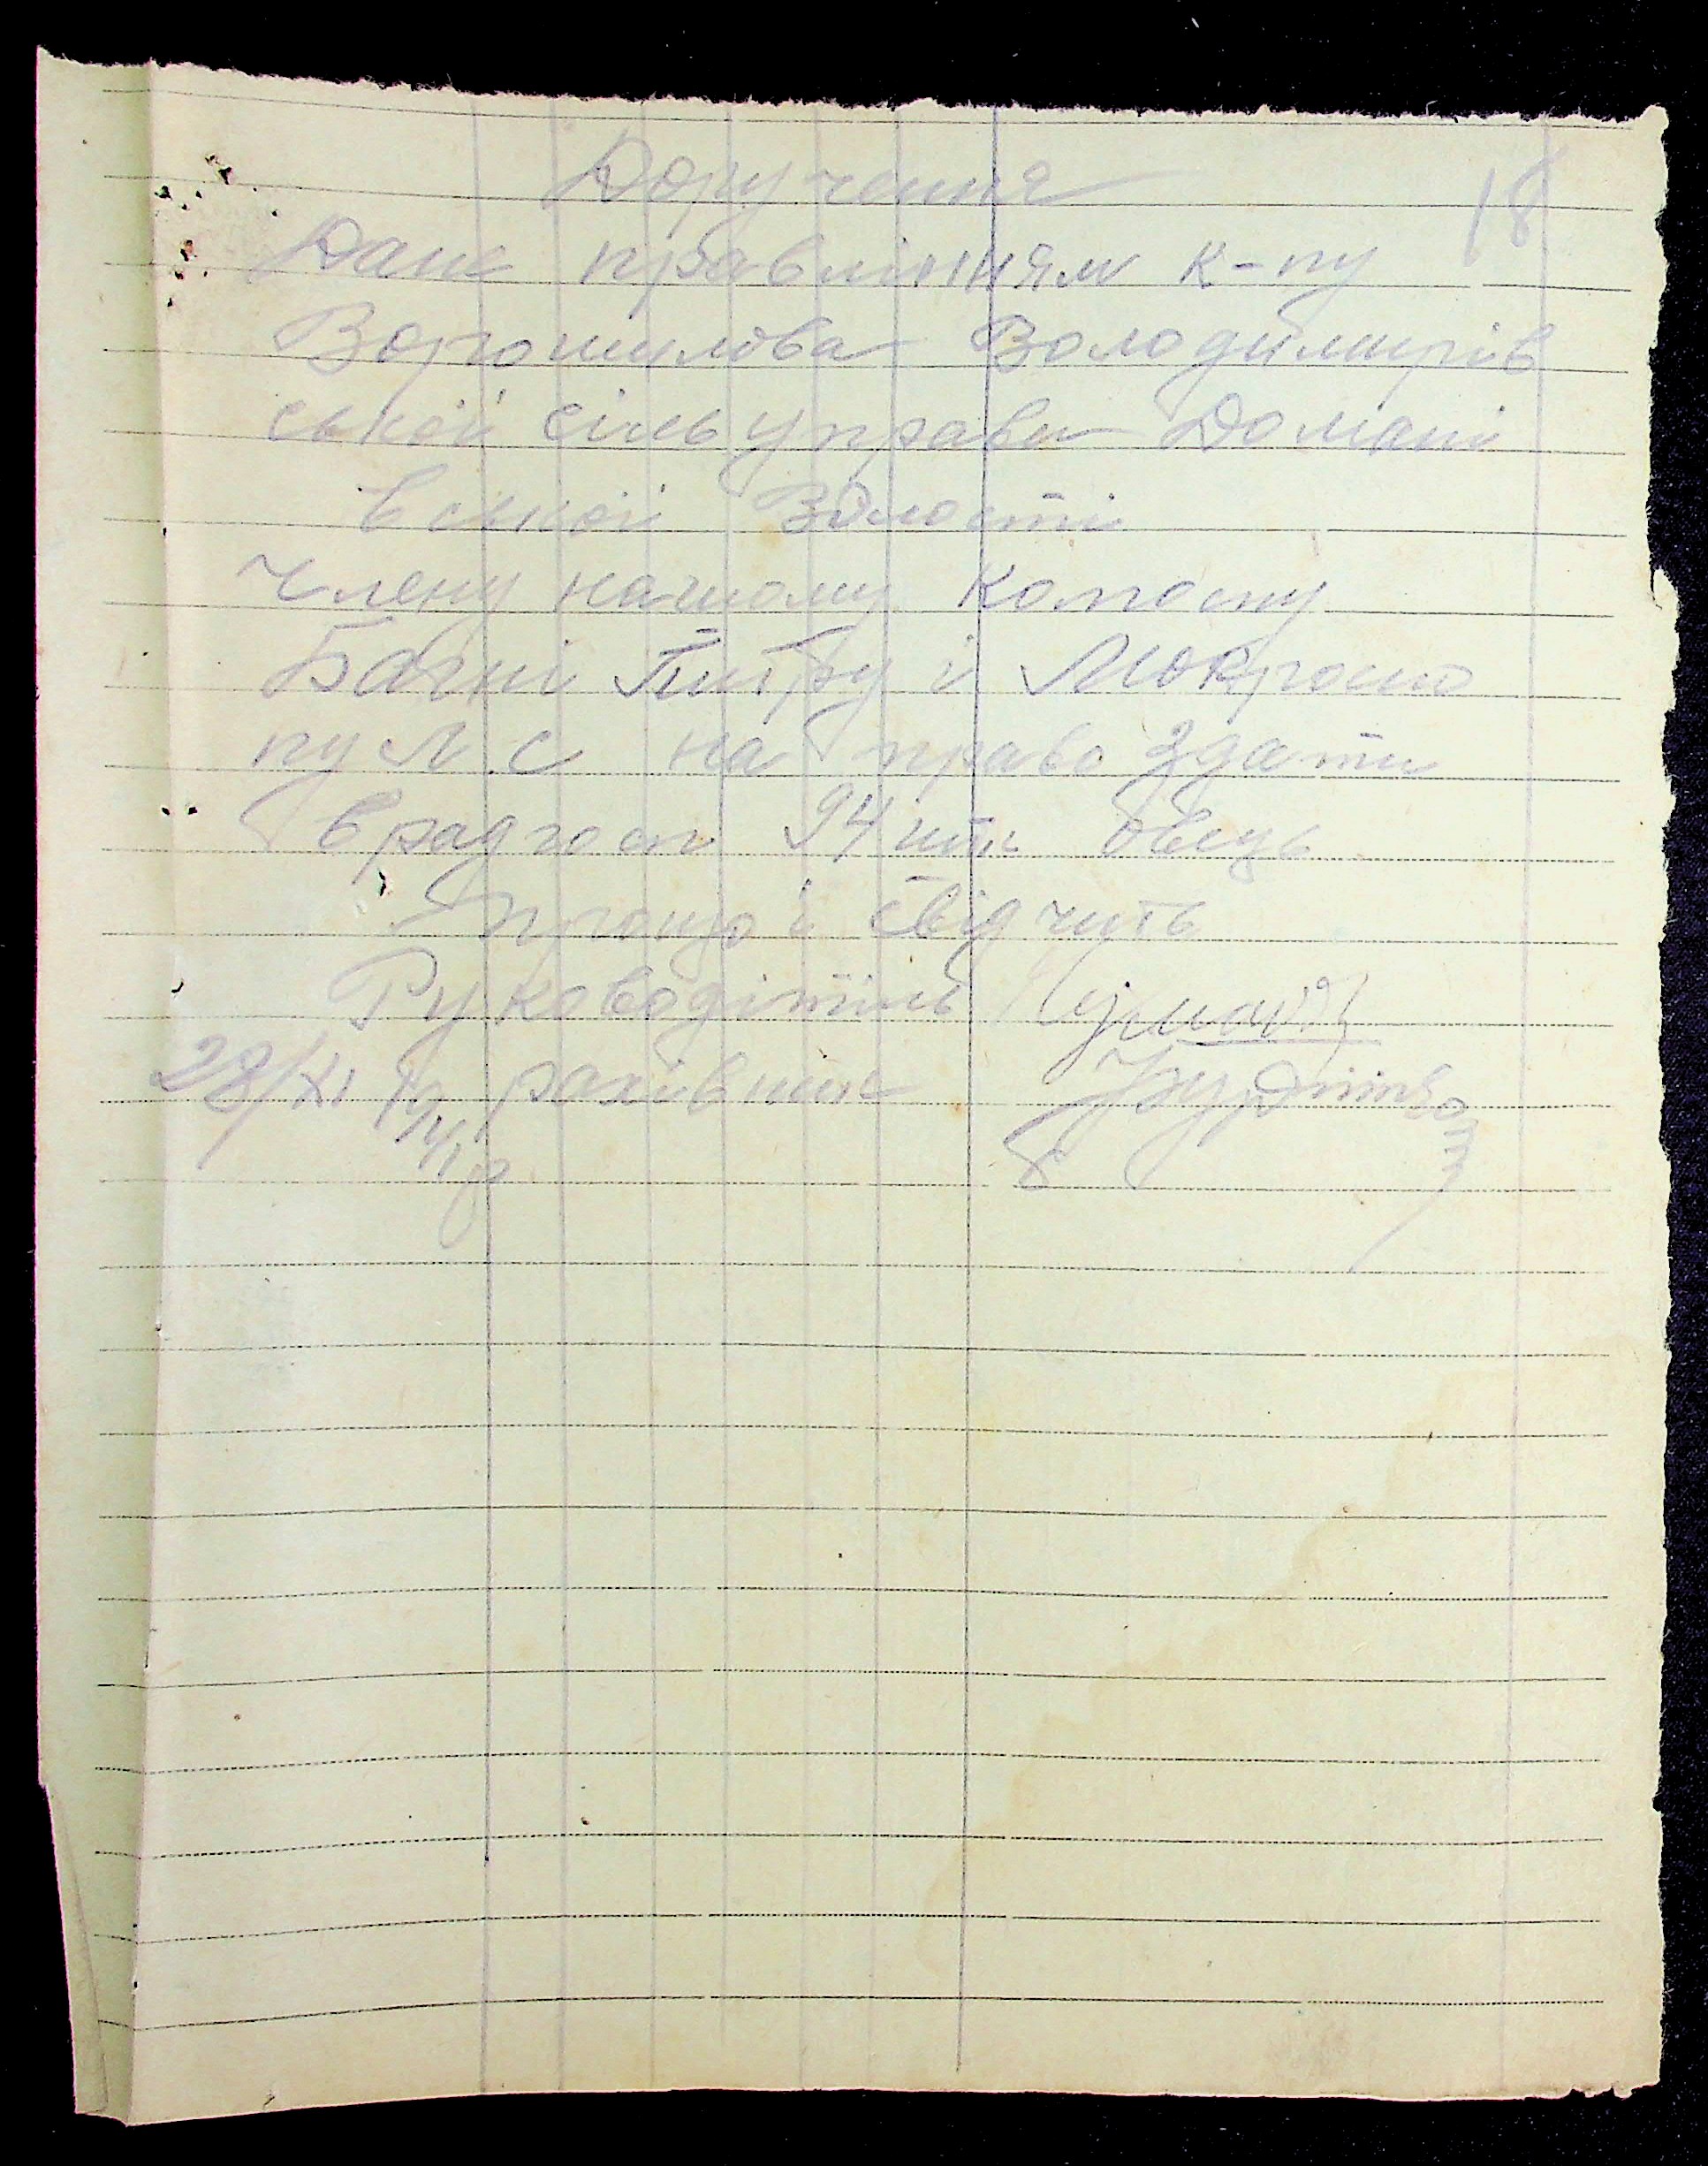 Доручення
18
Дане правлінням к-пу
Ворошилова Володимирів
ської сільуправи Домані
вської Волости
Члену нашому колгоспу
Багні Питру і Мокрошо
пу Л.С на право здати
в радгосп 94 шт. овець
прощо і свідчить
Руководітіль
28/XI рахівник